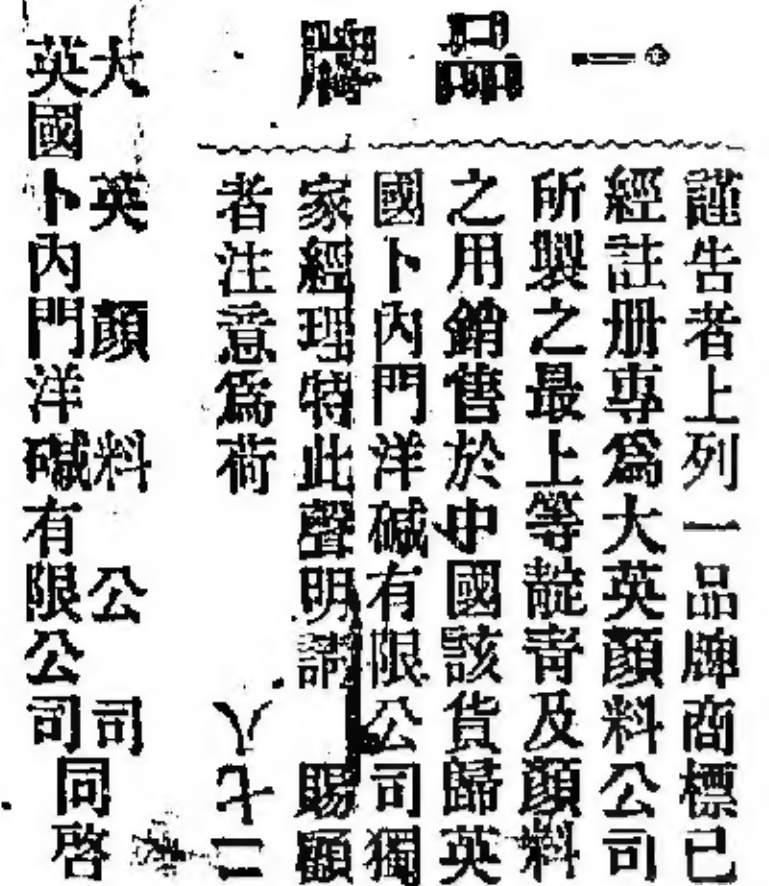 一品牌
謹告者上列一品牌商標已
經註册專爲大英顏料公司
所製之最上等靛青及顏料
之用銷售於中國該貨歸英
國卜內門洋碱有限公司獨
家經理特此聲明請 賜顧
者注意爲荷 八七二
大英顏料公司
英國卜內門洋碱有限公司
同啓